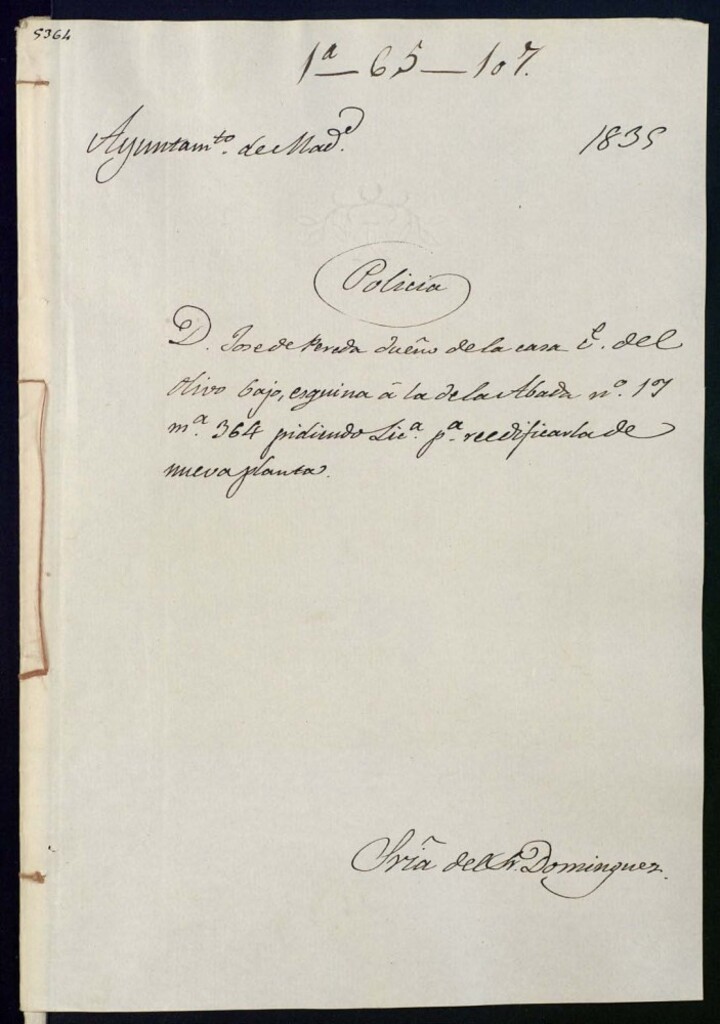 5364
1ª — 65 — 107.
Ayuntamto. de Madd.
1835
Policia
D. Jose de Pereda dueño de la casa Ce. del
Olivo bajo, esquina á la de la Abada nº. 17
mª. 364 pidiendo Lica. pª. reedificarla de
nueva planta.
Sria del Sr. Dominguez.